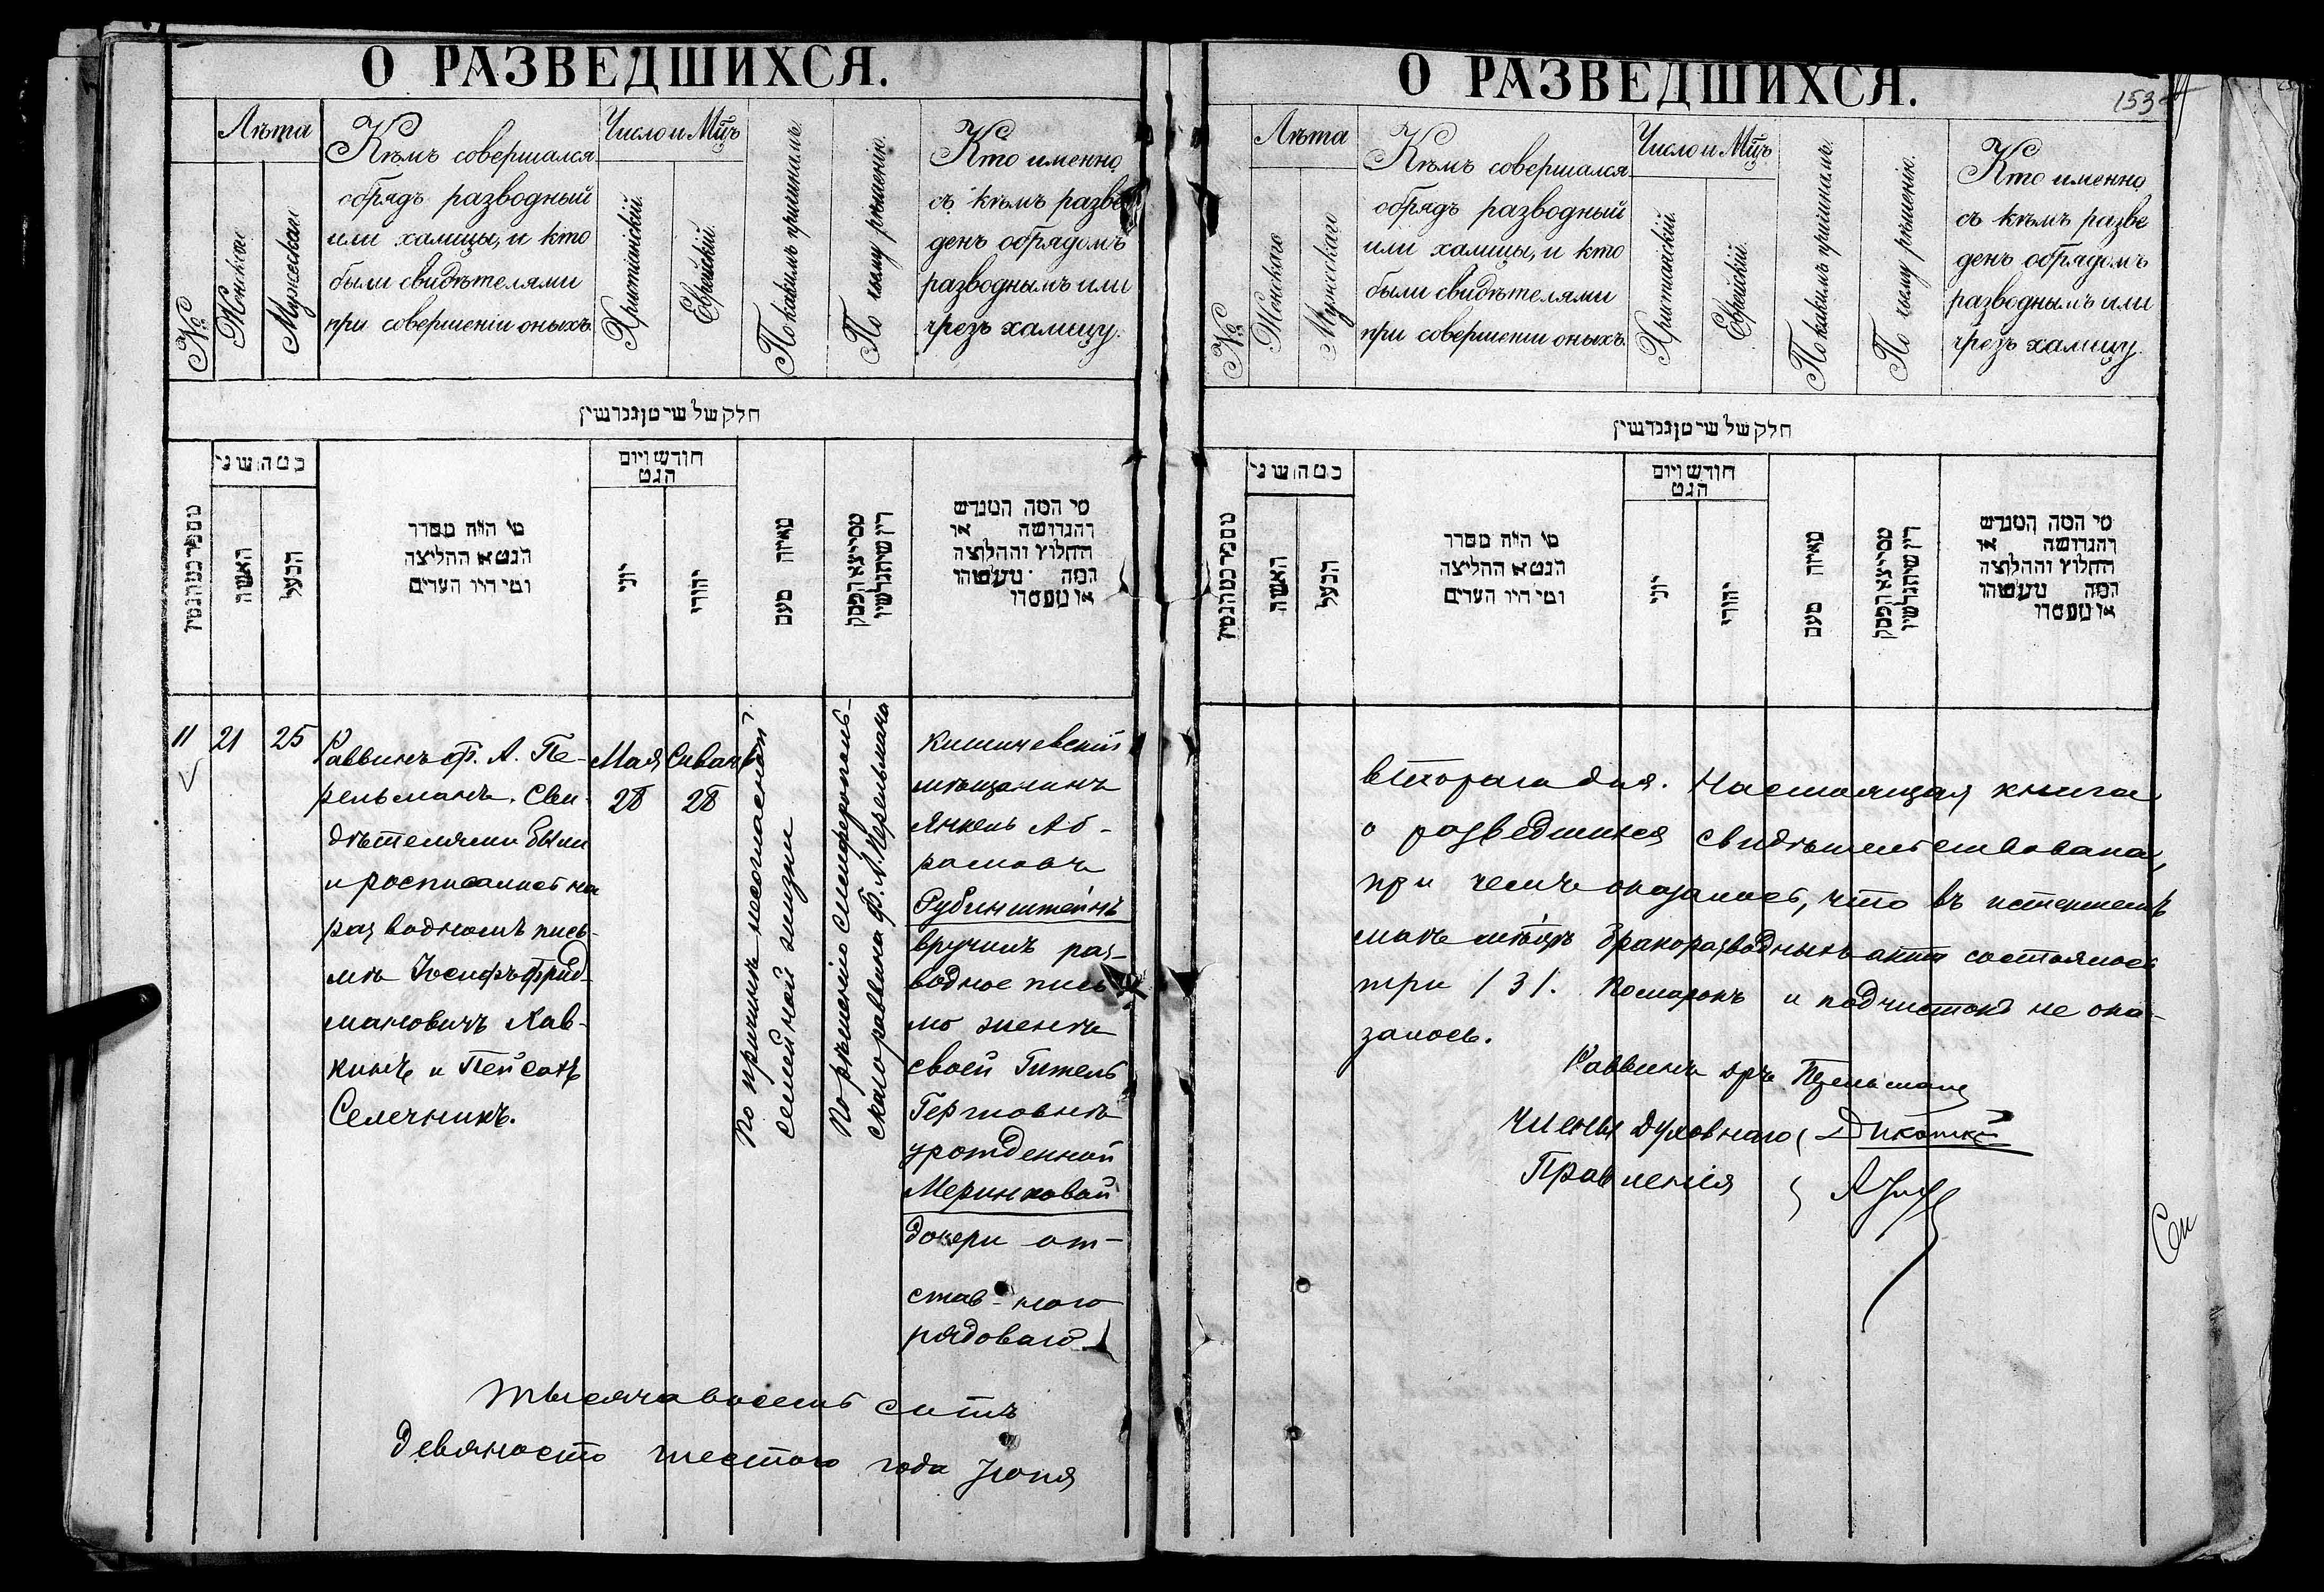 О РАЗВЕДШИХСЯ.
№
Лѣта
Женскаго
Мужескаго
Кѣмъ совершался
обрядъ разводный
или халицы, и кто
были свидѣтелями
при совершеніи оныхъ.
Число и Мцъ
Христіанскій.
Еврейскій.
По какимъ причинамъ.
По чьему рѣшенію.
Кто именно,
съ кѣмъ разве
денъ обрядомъ
разводнымъ или
чрезъ халицу.
חלק של שי טון גרושין
כמה שני
האשה
הבעל
מי היה מסדר
הגט או החליצה
ומי היו העדים
חודש ויום
הגט
יוני
יהודי
מאיזה טעם
מי המה המגרש
והגרושה או
החלוץ והחלוצה
המה
11
21
25
Раввинъ Ф. А. Пе-
рельманъ. Сви-
дѣтелями были
и росписались на
разводномъ пись-
мѣ Іосифъ Фрид-
мановичъ Хав-
кинъ и Пейсахъ
Селечникъ.
Мая
28
Сиванъ
28
По причинѣ несогласной
семейной жизни
По рѣшенію Симферополь-
скаго раввина Ф. А. Перельмана
Кишиневскій
мѣщанинъ
Янкель Аб-
рамовъ
Рубинштейнъ
вручилъ раз-
водное пись-
мо женѣ
своей Гитель
Гершовнѣ
урожденной
Меринковой
дочери от-
став-ного
рядоваго
Тысяча восемь сотъ
девяносто шестого года Іюня
О РАЗВЕДШИХСЯ.
153
№
Лѣта
Женскаго
Мужскаго
Кѣмъ совершался
обрядъ разводный
или халицы, и кто
были свидѣтелями
при совершеніи оныхъ.
Число и Мцъ
Христіанскій.
Еврейскій.
По какимъ причинамъ.
По чьему рѣшенію.
Кто именно,
съ кѣмъ разве
денъ обрядомъ
разводнымъ или
чрезъ халицу.
חלק של שי טון גרושין
כמה שני
האשה
הבעל
מי היה מסדר
הגט או החליצה
ומי היו העדים
חודש ויום
הגט
יוני
יהודי
מאיזה טעם
מי המה המגרש
והגרושה או
החלוץ והחלוצה
המה
втораго дня. Настоящая книга
о разведшихся свидѣтельствована,
при чемъ оказалось, что въ истекшемъ
маѣ мѣсяцѣ бракоразводныхъ актъ состоялось
три /3/. Помарокъ и подчистокъ не ока-
залось.
Раввинъ дръ Перельманъ
Члены Духовнаго
Правленія